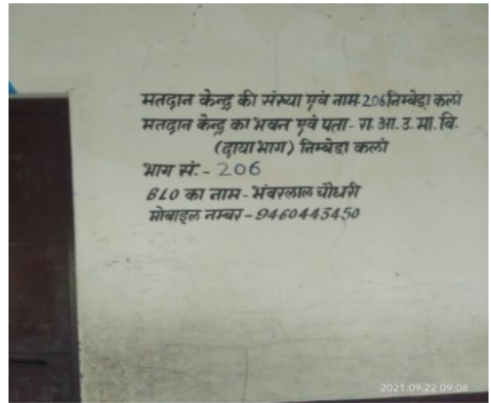 मतदान केन्द्र की संख्या एवं नाम-206 निम्बेड़ा कलां
मतदान केन्द्र का भवन एवं पता- रा. आ. उ. मा. वि.
(दाया भाग) निम्बेड़ा कलां
भाग सं.- 206
BLO का नाम - भंवरलाल चौधरी
मोबाइल नम्बर - 9460443450
2021.09.22 09:08